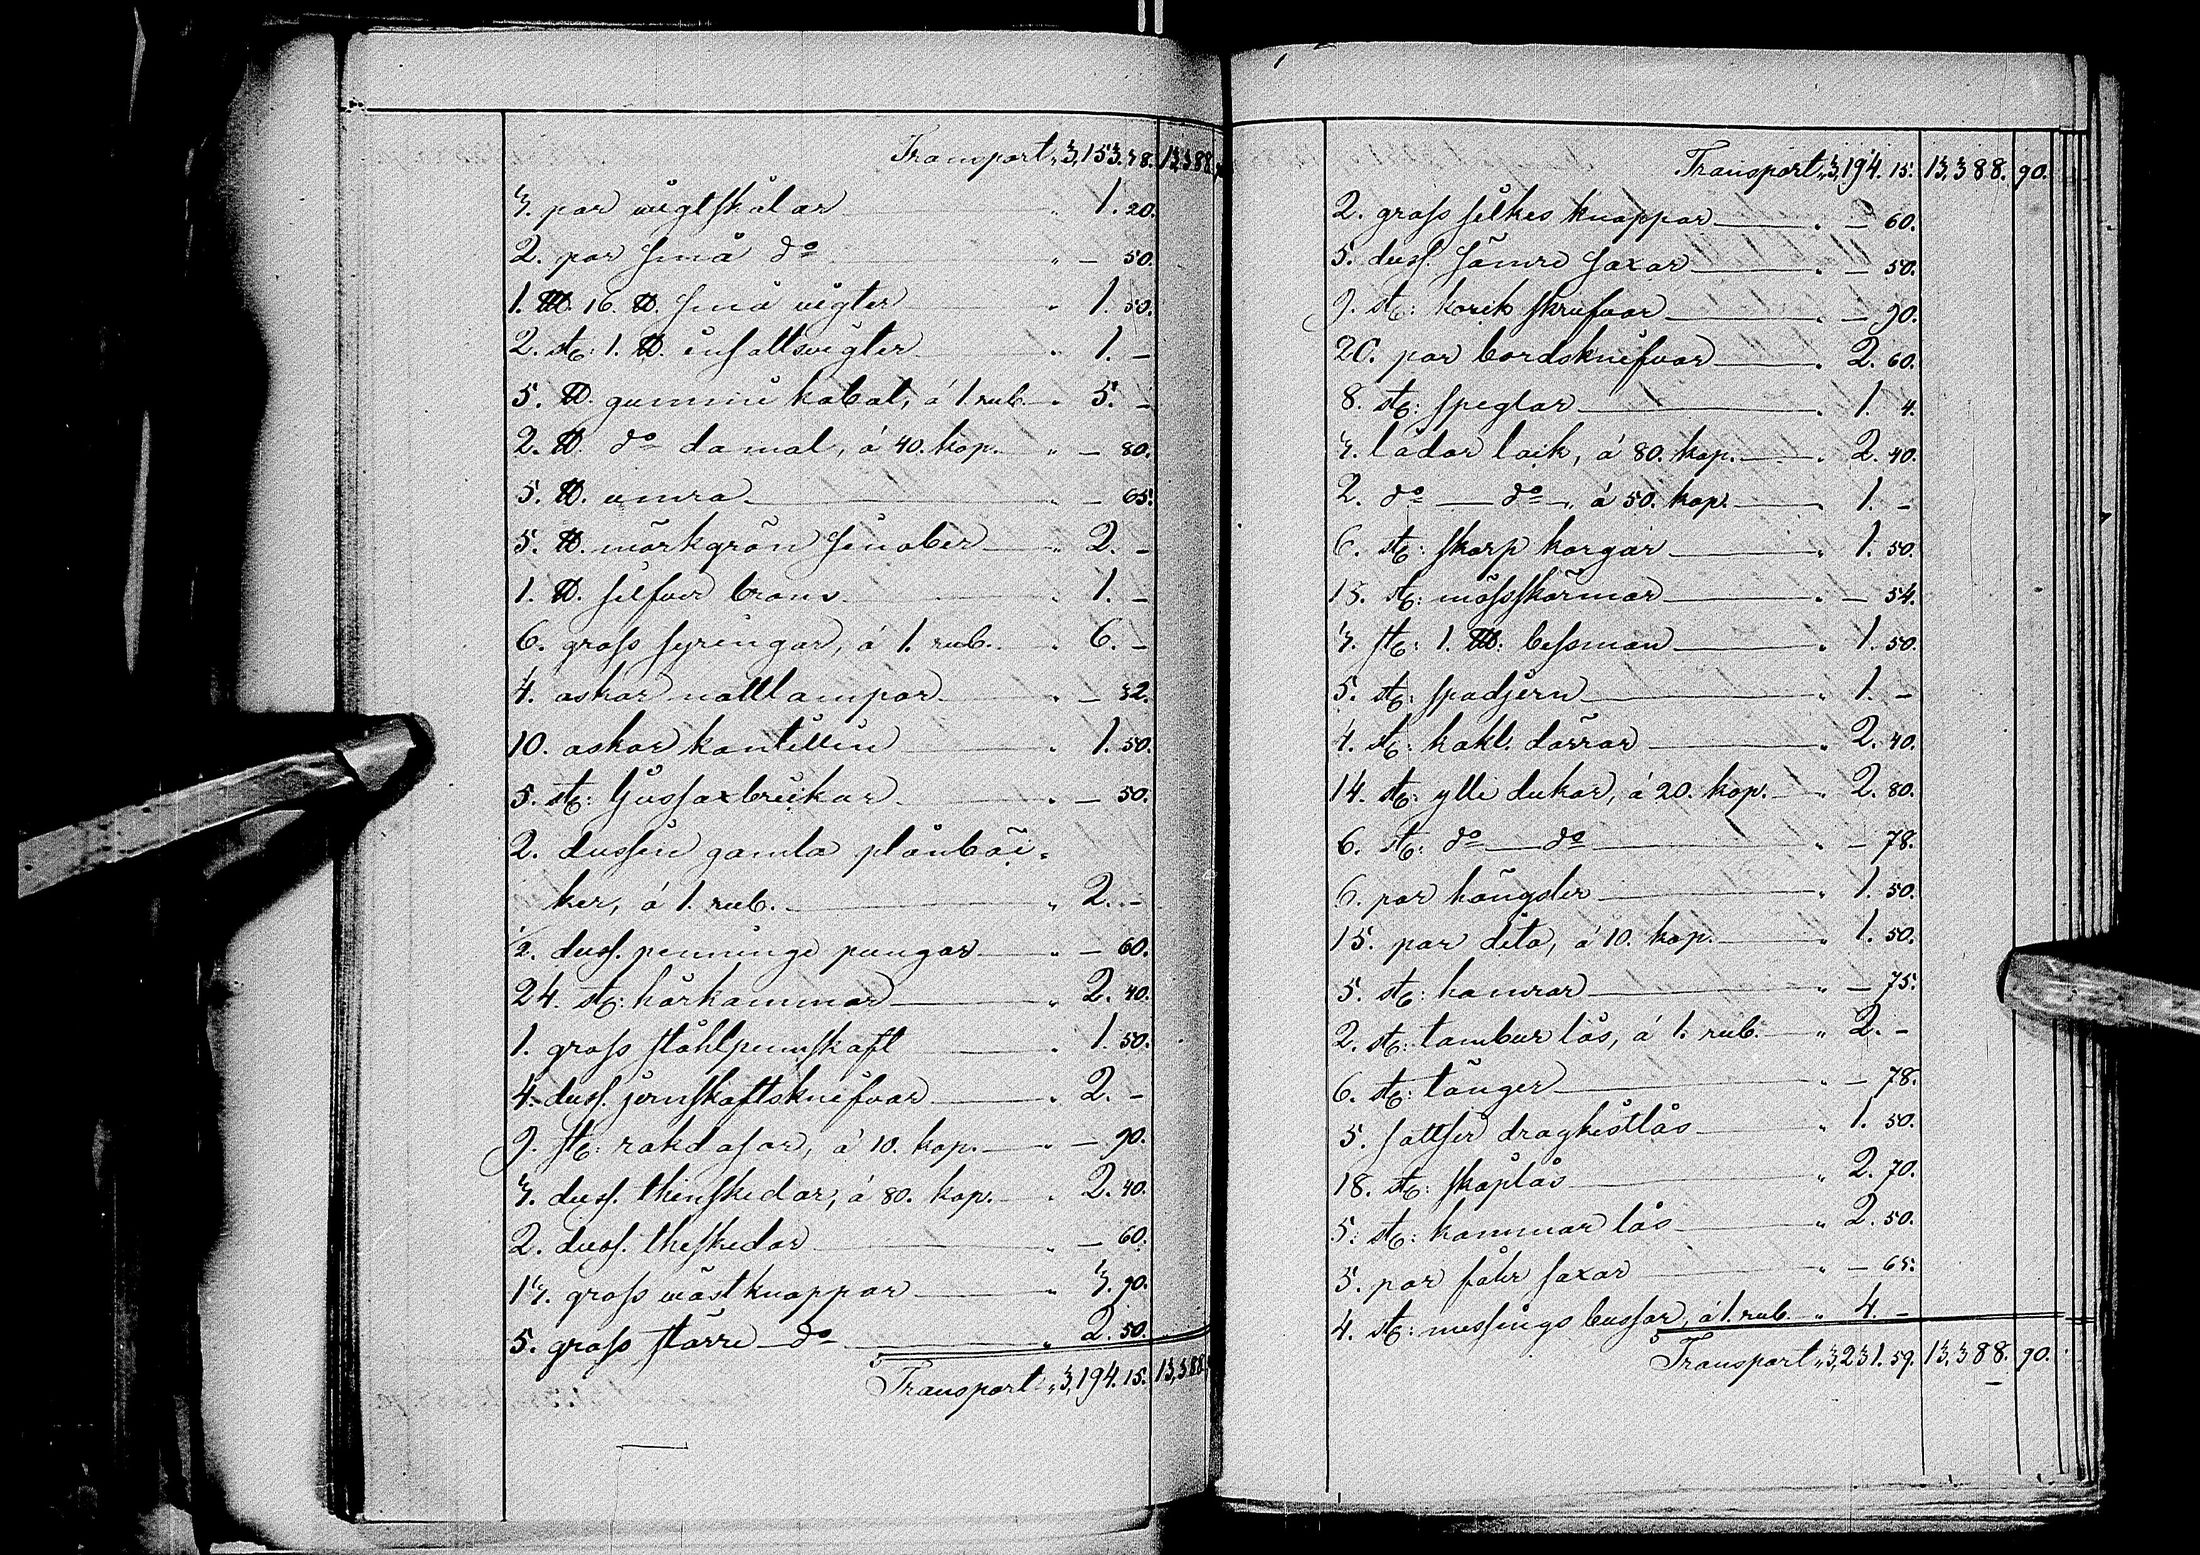 Transport „ 3,153. 38. 13,388.
3. par wigtskålar „ 1. 20.
2. par små do „ — 50.
1. L℔. 16. ℔. små wigter „ 1. 50.
2. st: 1. ℔. insattswigter „ 1. —
5. ℔. gummi kobal, á 1 rub. „ 5. —
2. ℔. do damal, á 40. kop. „ — 80.
5. ℔. umra „ — 65.
5. ℔. mörkgrön sinober „ 2. —
1. ℔. silfver brons „ 1. —
6. gross syringar, á 1. rub. „ 6. —
4. askar nattlampor „ — 32.
10. askar kantillin „ 1. 50.
5. st: ljussaxbrickar „ — 50.
2. dussin gamla plånböc-
ker, á 1. rub. „ 2. —
2. duss. penninge pungar „ — 60.
24. st: hårkammar „ 2. 40.
1. gross ståhlpennskaft „ 1. 50.
4. duss. jernskaftsknifvar „ 2. —
9. st: rakdosor, á 10. kop. „ — 90.
3. duss. thinskedar, á 80. kop. „ 2. 40.
2. duss. theskedar „ — 60.
13. gross wästknappar „ 3. 90.
5. gross större do „ 2. 50.
Transport „ 3,194. 15. 13,388.
Transport „ 3,194. 15. 13,388. 90.
2. gross silkes knappar „ — 60.
5. duss. sämre saxar „ — 50.
9. st: korik skrufvar „ — 90.
20. par bordsknifvar „ 2. 60.
8. st: speglar „ 1. 4.
3. lådor laik, á 80. kop. „ 2. 40.
2. do — do „ á 50. kop. „ 1. —
6. st: skorp korgar „ 1. 50.
18. st: mösskärmar „ — 54.
3. st: 1. L℔: bessman „ 1. 50.
5. st: spadjern „ 1. —
4. st: kakl. dörrar „ 2. 40.
14. st: ylle dukar, á 20. kop. „ 2. 80.
6. st: do — do „ — 78.
6. par hängsler „ 1. 50.
15. par dito, á 10. kop. „ 1. 50.
5. st: hamrar „ — 75.
2. st: tambur lås, á 1. rub. „ 2. —
6. st: tänger „ — 78.
5. sattser dragkistlås „ 1. 50.
18. st: skåplås „ 2. 70.
5. st: kammar lås „ 2. 50.
5. par fåhr saxar „ — 65.
4. st: messings bussar, á 1. rub. „ 4. —
Transport „ 3,231. 59. 13,388. 90.